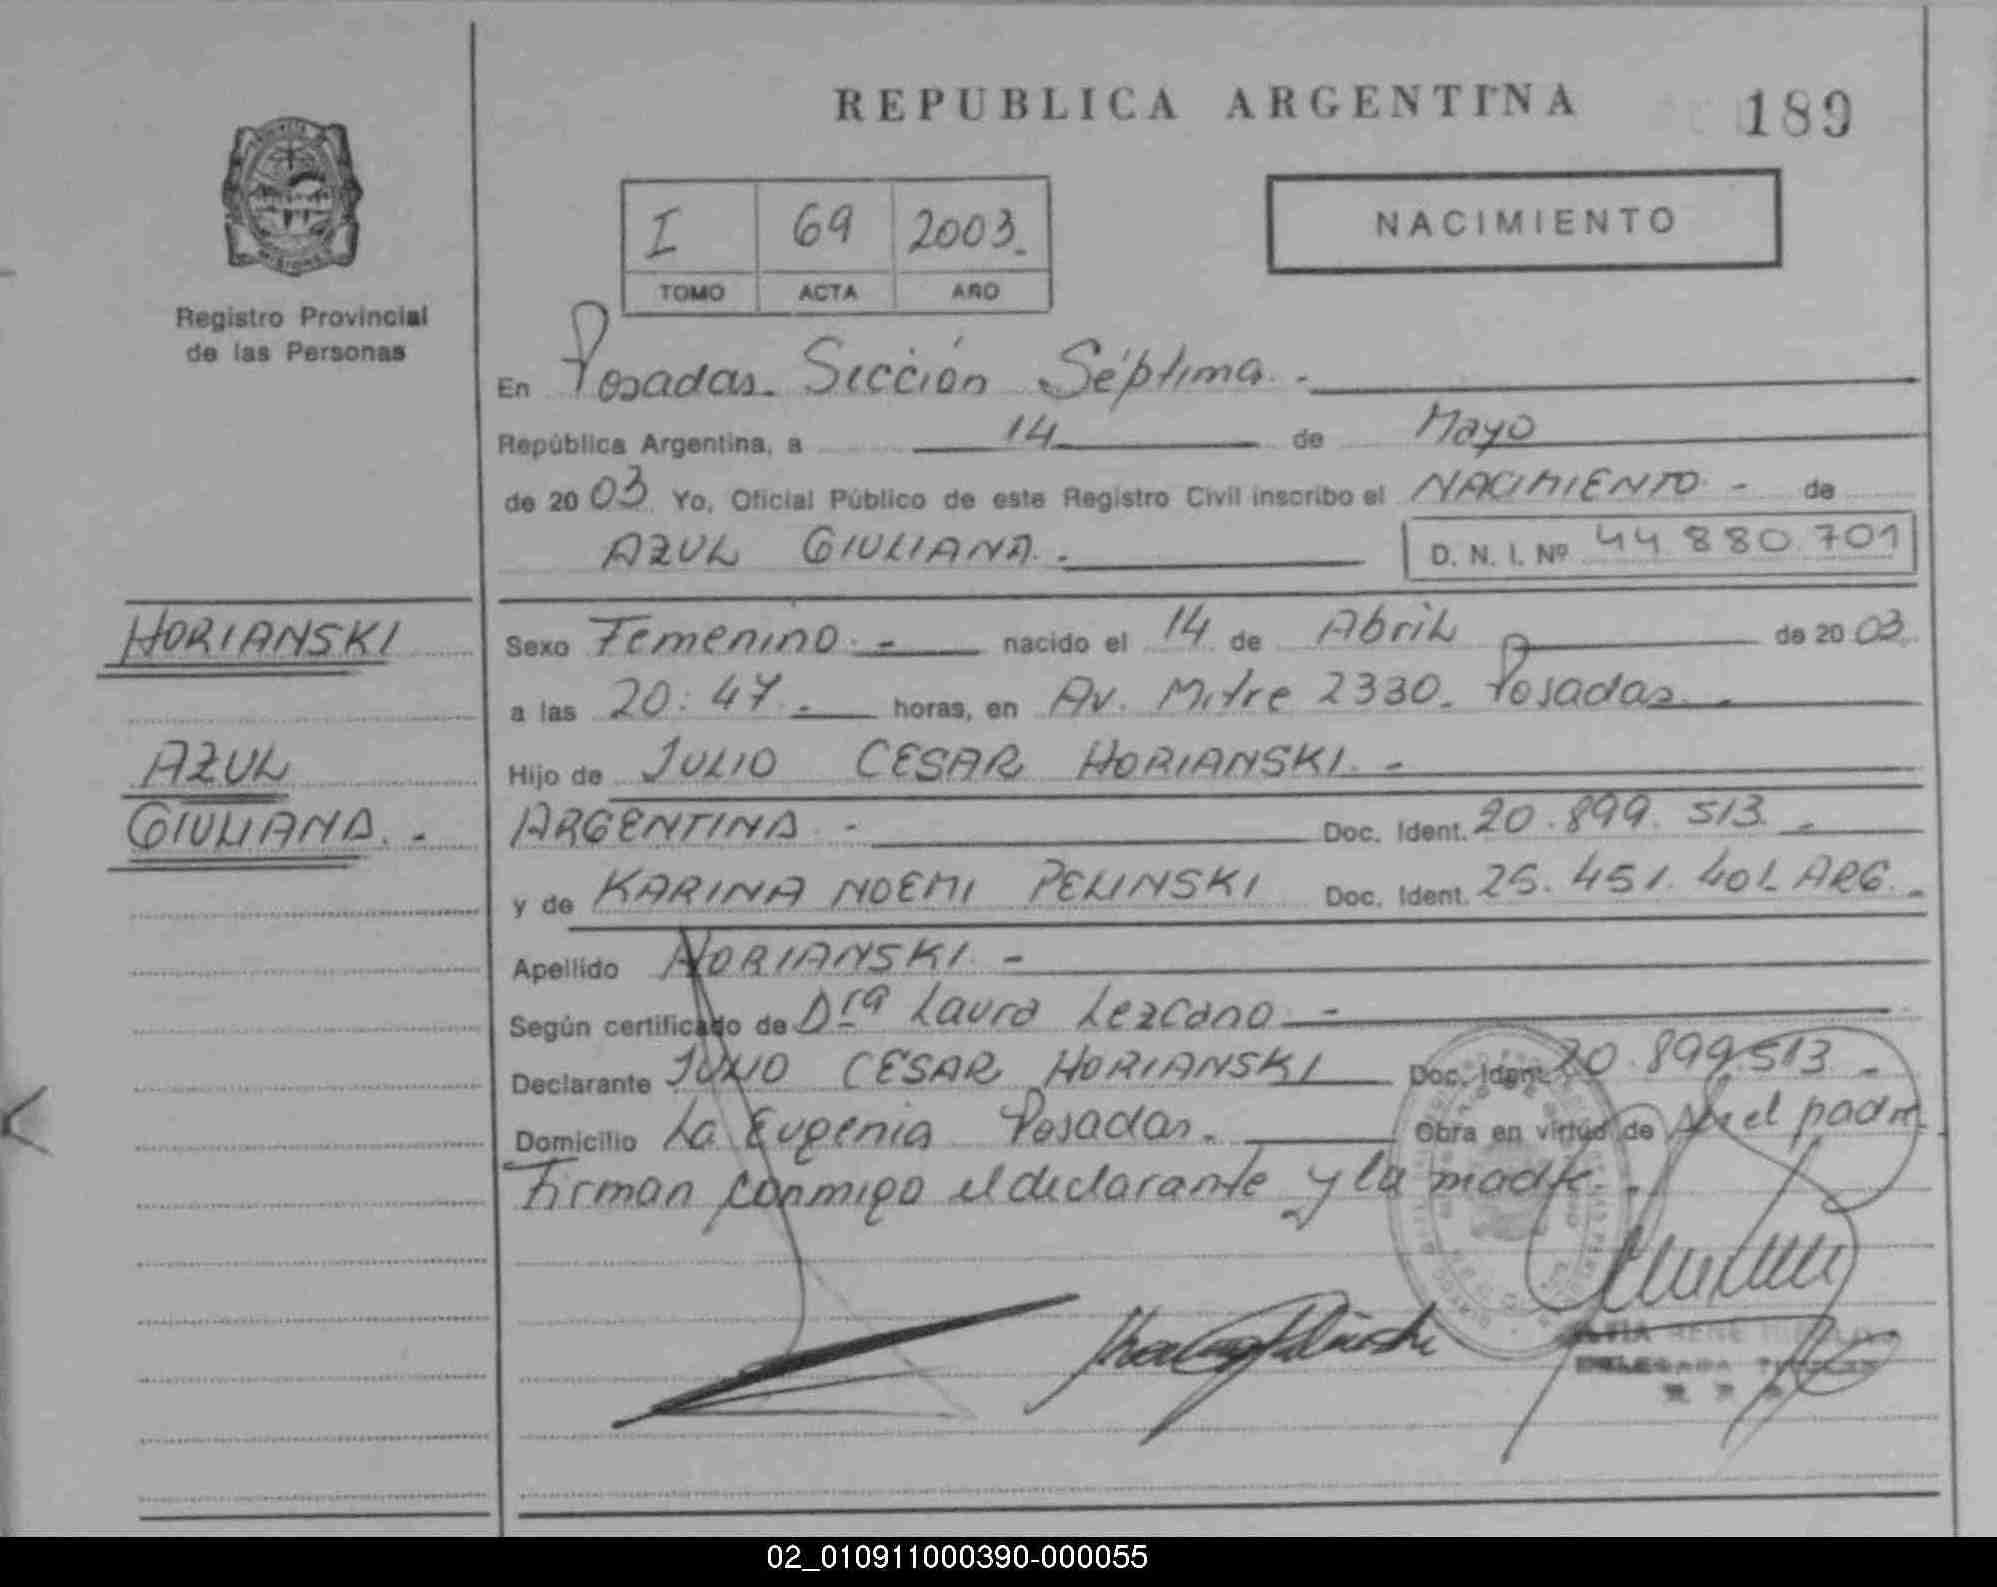 REPUBLICA ARGENTINA
189
NACIMIENTO
I 69 2003.
TOMO ACTA AÑO
Registro Provincial
de las Personas
En Posadas. Sección Séptima. -
República Argentina, a 14 de Mayo
de 2003 Yo, Oficial Público de este Registro Civil inscribo el NACIMIENTO - de
AZUL GIULIANA. - D. N. I. Nº 44.880.701
HORIANSKI
AZUL
GIULIANA. -
Sexo Femenino. - nacido el 14 de Abril de 2003
a las 20:47. - horas, en Av. Mitre 2330. Posadas. -
Hijo de JULIO CESAR HORIANSKI. -
ARGENTINA. - Doc. Ident. 20.899.513. -
y de KARINA NOEMI PELINSKI Doc. Ident. 25.451.401 ARG. -
Apellido HORIANSKI. -
Según certificado de Dra Laura Lezcano. -
Declarante JULIO CESAR HORIANSKI Doc. Ident. 20.899.513 -
Domicilio La Eugenia Posadas. Obra en virtud de el padre.
Firman conmigo el declarante y la madre. -
DELEGADA
02_010911000390-000055